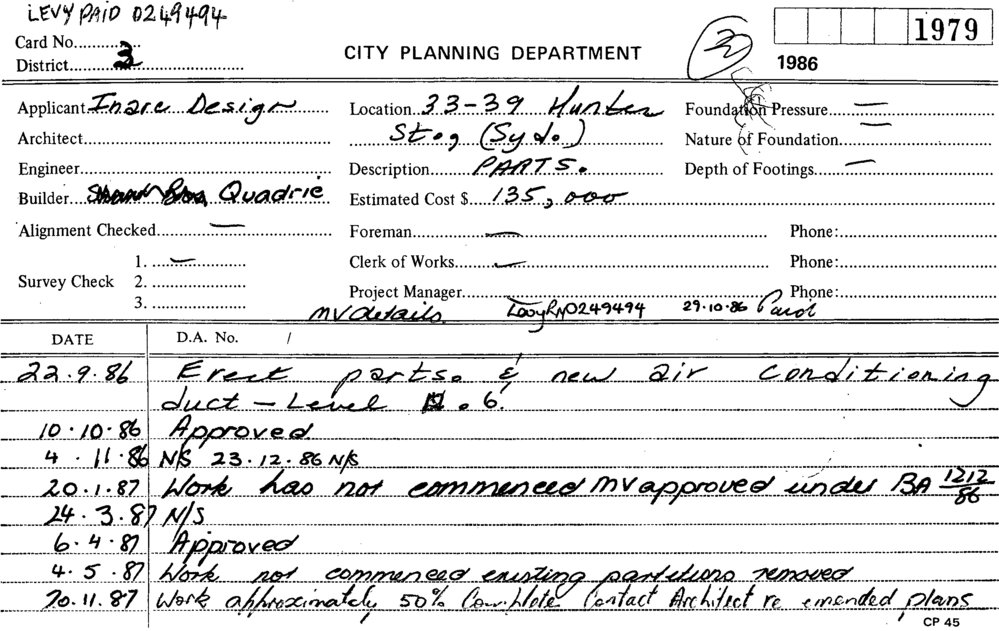 LEVY PAID 0249494
Card No. 3
District 3
CITY PLANNING DEPARTMENT
3
1979
1986
Applicant Inare Design
Location 33-39 Hunter
St., (Syd.)
Foundation Pressure —
Architect
Nature of Foundation —
Engineer
Description PARTS.
Depth of Footings —
Builder Quadric
Estimated Cost $ 135,000
Alignment Checked —
Foreman —
Phone:
Survey Check
1. —
2.
3.
Clerk of Works —
Phone:
Project Manager
Phone:
MV details
Levy RN 0249494 29.10.86 Paid
DATE
D.A. No. /
22.9.86 Erect parts. & new air conditioning
duct – Level 6.
10.10.86 Approved.
4.11.86 N/S 23.12.86 N/S
20.1.87 Work has not commenced MV approved under BA 1212/86
24.3.87 N/S
6.4.87 Approved
4.5.87 Work not commenced existing partitions removed
20.11.87 Work approximately 50% Complete Contact Architect re emended plans
CP 45